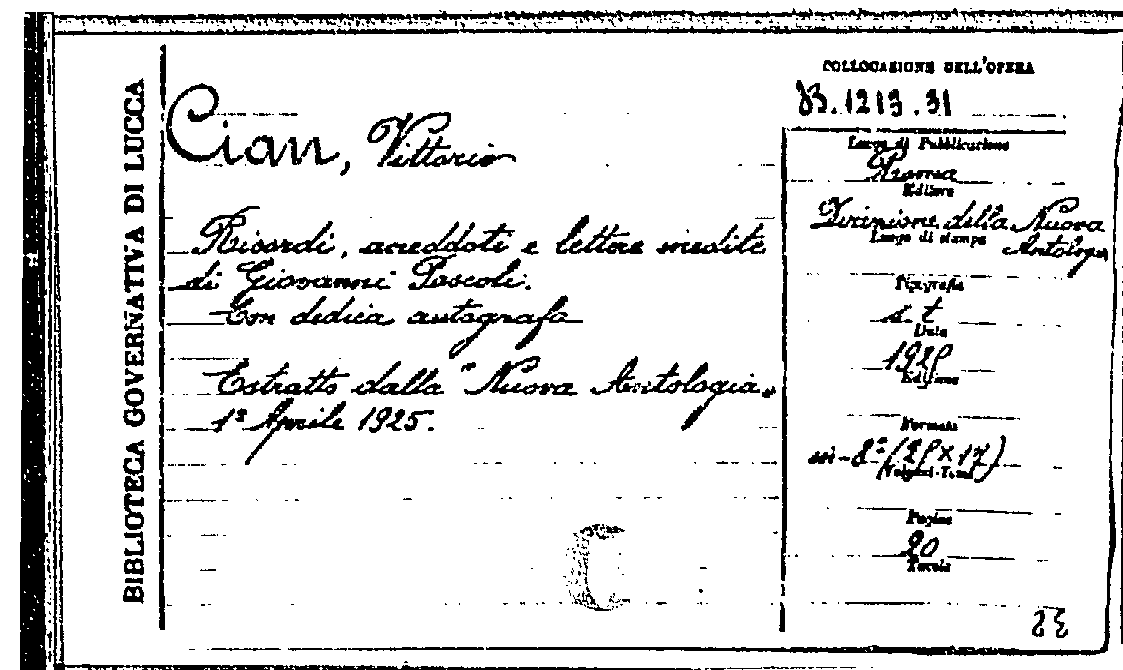 BIBLIOTECA GOVERNATIVA DI LUCCA
Cian, Vittorio
Ricordi, aneddoti e lettere inedite
di Giovanni Pascoli.
Con dedica autografa
Estratto dalla "Nuova Antologia"
1º Aprile 1925.
C
COLLOCAZIONE DELL'OPERA
B.1213.31
Luogo di Pubblicazione
Roma
Editore
Direzione della Nuova
Antologia
Luogo di stampa
Tipografia
s. t
Data
1925
Edizione
Formato
in-8º (25 x 17)
Volumi-Tomi
Pagine
20
Tavole